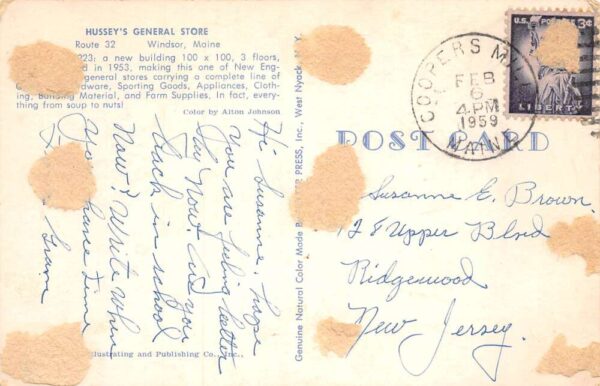 HUSSEY'S GENERAL STORE
Route 32 Windsor, Maine
923; a new building 100 x 100, 3 floors,
d in 1953, making this one of New Eng-
general stores carrying a complete line of
dware, Sporting Goods, Appliances, Cloth-
ing, Building Material, and Farm Supplies. In fact, every-
thing from soup to nuts!
Color by Alton Johnson
Hi Susanne. hope
you are feeling better
day now. Are you
back in school
now? Write when
you have time
Gram
Illustrating and Publishing Co., Inc.,
Genuine Natural Color Made PRESS, Inc., West Nyack, N. Y.
POST CARD
COOPERS MILLS
FEB
6
4 PM
1959
MAINE
U.S. POSTAGE 3¢
LIBERTY
Susanne E. Brown.
128 Upper Blvd
Ridgewood
New Jersey.